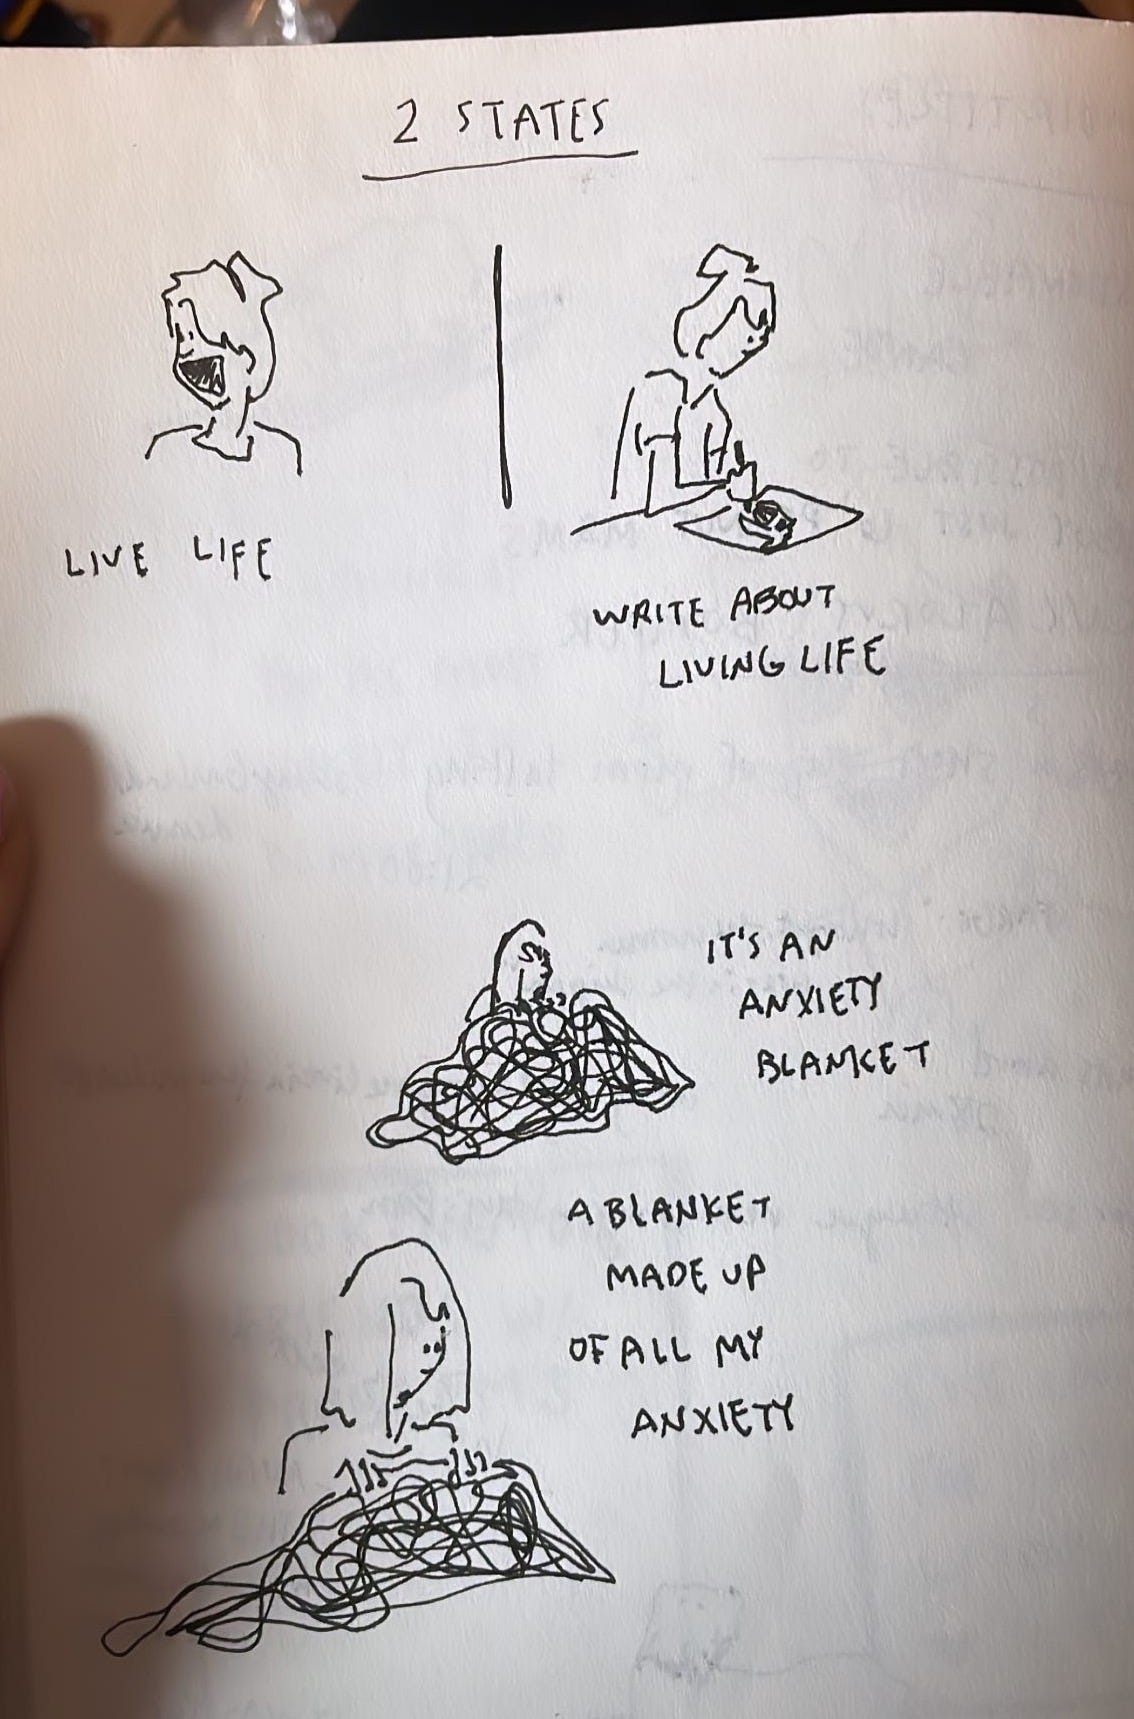 2 STATES
LIVE LIFE
WRITE ABOUT
LIVING LIFE
IT'S AN
ANXIETY
BLANKET
A BLANKET
MADE UP
OF ALL MY
ANXIETY